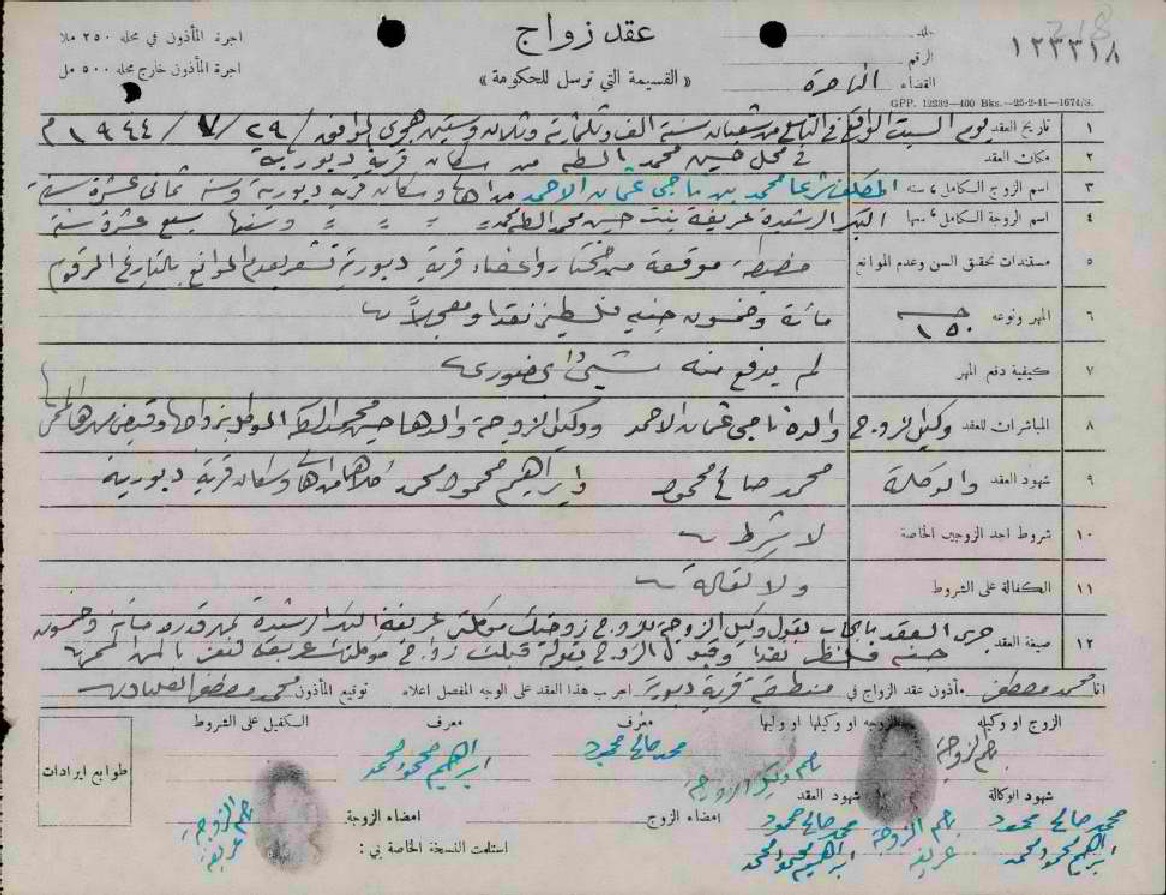 عقد زواج
« القسيمة التي ترسل للحكومة »
اجرة المأذون في محله ٢٥٠ ملا
اجرة المأذون خارج محله ٥٠٠ مل
جلد
الرقم ١٢٣٣١٨
القضاء الناصرة
318
GPP. 12232—400 Bks.—25-2-41—1674/S.
١ تاريخ العقد يوم السبت الواقع في التاسع من شعبان سنة الف وثلثماية وثلاث وستين هجري الموافق / ٢٩ / ٧ / ١٩٤٤ م
٢ مكان العقد في محل حسين محمد من سكان قرية دبورية
٣ اسم الزوج الكامل وسنه المكلف شرعا محمد بن ناجي عثمان الاحمد من اهالي وسكان قرية دبورية وسنه ثماني عشرة سنة
٤ اسم الزوجة الكامل وسنها البكر الرشيدة عريفة بنت حسين محمد = = = = وسنها سبع عشرة سنة
٥ مستندات تحقق السن وعدم الموانع مضبطة موقعة من مختار واعضاء قرية دبورية تشعر بعدم الموانع بالتاريخ المرقوم
٦ المهر ونوعه ١٥٠ مائة وخمسون جنيه فلسطيني نقدا ومعجلاً
٧ كيفية دفع المهر لم يدفع منه شيئ بحضوري
٨ المباشرات للعقد وكيل الزوج والده ناجي عثمان الاحمد ووكيل الزوجة والدها حسين محمد الموكل بزواجها وقبض مهرها
٩ شهود العقد والوكالة محمد صالح محمود وابراهيم محمود محمد كلاهما من اهالي وسكان قرية دبورية
١٠ شروط احد الزوجين الخاصة لا شرط
١١ الكفالة على الشروط ولا كفالة
١٢ صيغة العقد جرى العقد بايجاب بقول وكيل الزوجة للزوج زوجتك موكلتي عريفة البكر الرشيدة بمهر قدره مائة وخمسون
جنيه فلسطيني نقدا وقبول الزوج بقوله قبلت زواج موكلتك عريفة لنفسي بالمهر
انا محمد مصطفى مأذون عقد الزواج في منطقة قرية دبورية اجريت هذا العقد على الوجه المفصل اعلاه توقيع المأذون محمد مصطفى
الزوج او وكيله
الزوجه او وكيلها او وليها
معرف
معرف
الكفيل على الشروط
بصم الزوج
بصم وكيل الزوجة
محمد صالح محمود
ابراهيم محمود محمد
طوابع ايرادات
شهود الوكالة
شهود العقد
امضاء الزوج
امضاء الزوجة
محمد صالح محمود
ابراهيم محمود محمد
بصم الزوجة
عريفة
محمد صالح محمود
ابراهيم محمود محمد
بصم الزوجة
عريفة
استلمت النسخة الخاصة بي :